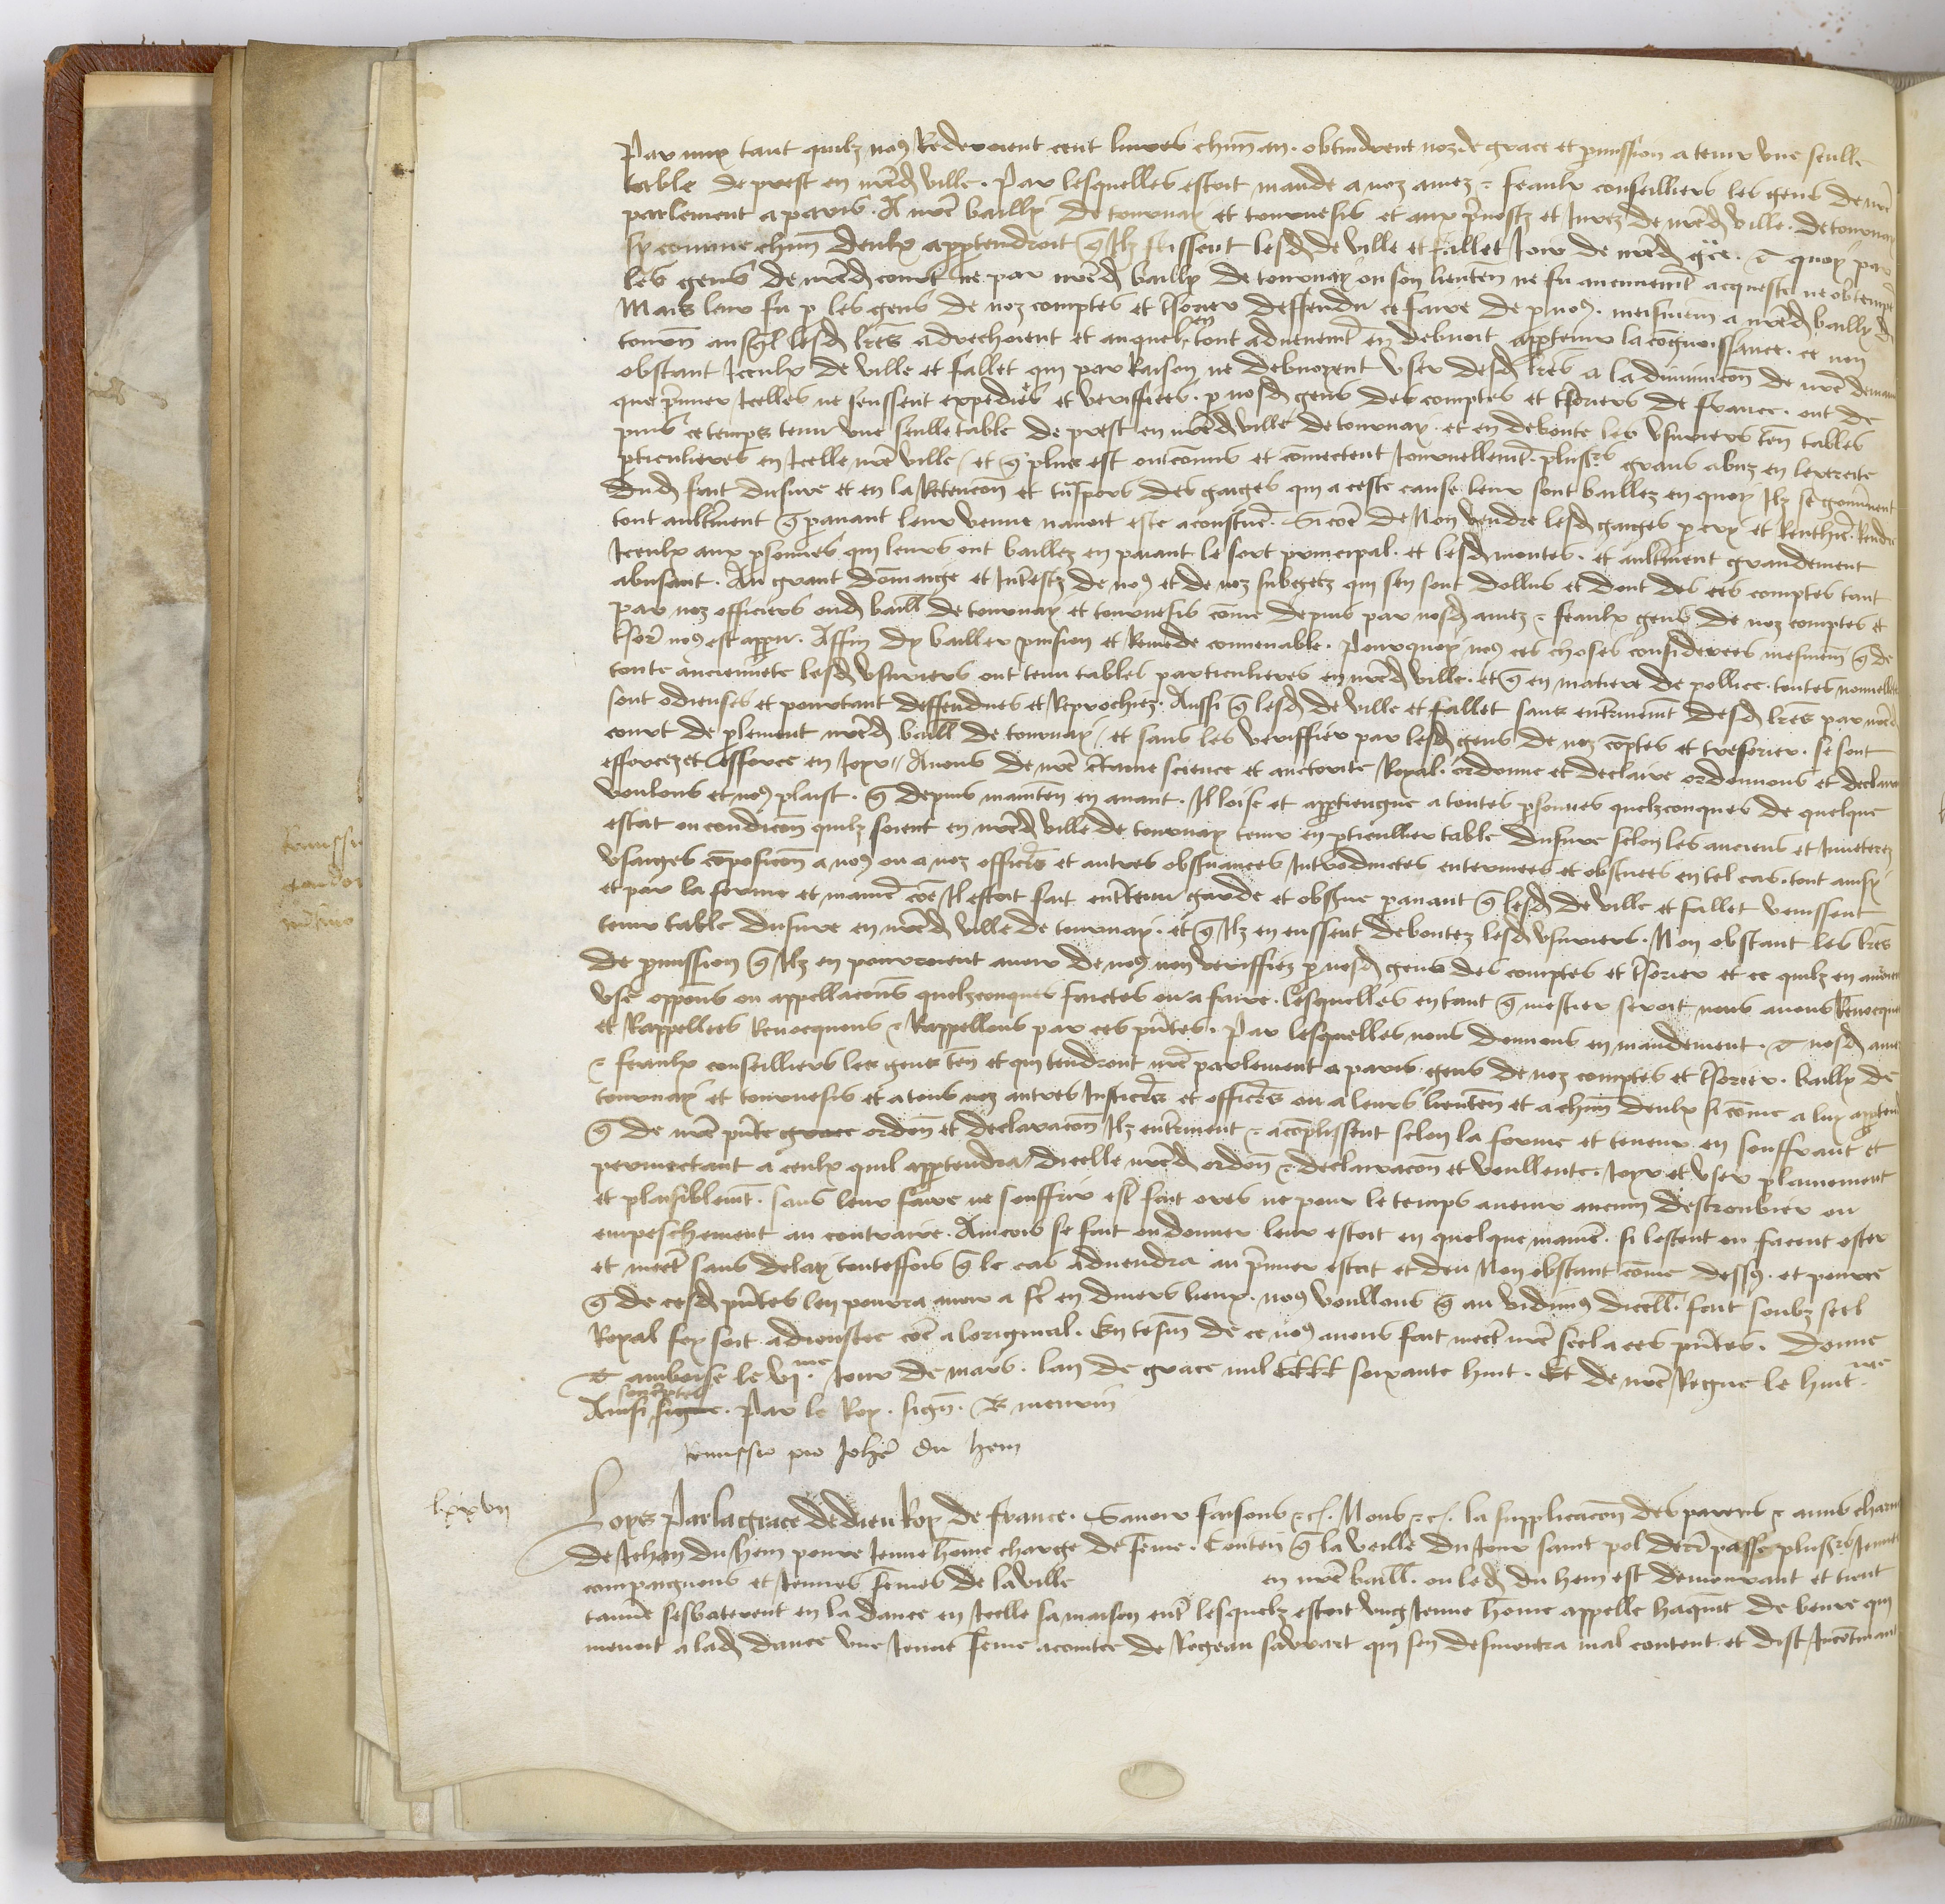 Par mix tant quilz noꝯ Rederoient cent livres chūn an. obtindrent noz de grace et pmission a tenir une seulle
table de prest en nr̄ed ville. Par lesquelles estoit mande a noz amez z feaulx conseilliers les gens de nr̄e
parlement a paris. A nr̄e bailly de tournay et tournesis et aux p̄uostz et Jurez de nr̄ed ville de tournay
sy comme chūn deulx appꝑtendroit q̄ Ilz feissent lesd de ville et fallet Joir de nr̄ed gr̄ce. A quoy par
les gens de nr̄ed court ne par nr̄ed bailly de tournay ou son lieuten̄ ne fu aucunemt acqueste ne obtempe
Mais leur fu p les gens de noz comptes et tsorier deffendu ce faire de p noꝯ. mesmem̄ a nr̄ed bailly d
tourn̄ auq̄l lesd lr̄es adrechoient et auquel en tout aduenemt en debuoit appꝑtenir la cōgnoissance. ce non
obstant Jceulx de ville et fallet qui par Raison ne debuoyent user desd lr̄es a la diminucōn de nr̄e demain
que p̄mier Jcelles ne feussent expediez et veriffiees. p nosd gens des comptes et tsoriers de france. ont de
puis ce temps tenu une seulle table de prest en nr̄ed ville de tournay. et en deboute les usuriers ten̄ tables
pticulieres en Jcelle nr̄e ville / et q̄ plus est ont cōmis et cōmectent Journellemt. plusrs grans abuz en lexercite
dud fait dusure et en la Retencōn et tn̄spors des gaiges qui a ceste cause leur sont baillez en quoy Ilz se gouu̇nent
tout aultrement q̄ pauant leur venue nauoit este acoustūe. Si cōe de Non vendre lesd gaiges p cry et Renchiē. Rendre
Jceulx aux psonnes qui leurs ont baillez en paiant le sort principal. et lesd montes. et aultrement grandement
abusant. Au grant dommaige et Jntestz de noꝯ et de noz subgetz qui sen sont dollus et dont des ces comptes tant
par noz officiers oud baill de tournay et tournesis cōme depuis par nosd amez z feaulx gens de noz comptes et
tsor noꝯ est appꝑu. Affin dy bailler puision et Remede conuenable. Pourquoy noꝯ ces choses considerees mesmem̄ q̄ de
toute anciennete lesd usuriers ont tenu tables particulieres en nr̄ed ville. et q̄ en matiere de pollice. toutes nouuelletez
sont odieuses et pourtant deffendues et Reprochiez. Aussi q̄ lesd de ville et fallet sans enterinemt desd lr̄es par nr̄ed
court de plement nr̄ed baill de tournay / et sans les veriffier par lesd gens de noz cōptes et tresorier. se sont
efforcez et efforce en Joyr // Auons de nr̄e ctaine science et auctorite Royal. ordonne et declaire ordonnons et declairons
voulons et noꝯ plaist. q̄ depuis mainten̄ en auant. Il loise et appꝑtiengne a toutes psonnes quelzconques de quelque
estat ou condicōn quilz soient en nr̄ed ville de tournay tenir en pticullier table dusure selon les anciens et Jnueterez
usaiges cōposicōn a noꝯ ou a noz officrs et autres obseruances Jntroductes enterinees et obseruees en tel cas. tout ainsy
et par la forme et manie cōe Il estoit fait entretenu garde et obserue pauant q̄ lesd de ville et fallet venissent
tenir table dusure en nr̄ed ville de tournay. et q̄ Ilz en eussent deboutez lesd usuriers. Non obstant les lr̄es
de pmission q̄ Ilz en pourroient auoir de noꝯ non veriffiez p nosd gens des comptes et tsorier et ce quilz en auoient
use oppons ou appellacōns quelzconques faictes ou a faire. lesquelles en tant q̄ mestier seroit nous auons Reuocque
et Rappellees Reuocquons z Rappellons par ces pn̄tes. Par lesquelles nous donnons en mandement. A nosd amez
z feaulx conseilliers les gens ten̄ et qui tendront nr̄e parlement a paris gens de noz comptes et tsorier. bailly de
tournay et tournesis et a tous noz autres Justicrs et officrs ou a leurs lieuten̄ et a chūn deulx si cōme a luy appꝑtend
q̄ de nr̄e pn̄te grace ordon̄ et declaracōn Ilz enterinent z acōplissent selon la forme et teneur en souffrant et
permectant a ceulx quil appꝑtendra / dicelle nr̄ed ordon̄ z declairacōn et voullente. Joyr et user plainement
et plaisiblemt. sans leur faire ne souffrir estre fait ores ne pour le temps auenir aucun destourbier ou
empeschement au contraire. Aincois se fait ou donner leur estoit en quelque manie. si lostent ou facent oster
et mectre sans delay toutesfois q̄ le cas aduendra au p̄mier estat et deu Non obstant cōme dessꝯ. et pource
q̄ de cesd pn̄tes len pourra auoir a fe en diuers lieux. noꝯ voullons q̄ au vidimꝯ dicell. fait soubz seel
Royal foy soit adioustee cōe a loriginal. En tesm̄ de ce noꝯ auons fait mectre nr̄e seel a ces pn̄tes. Donne
A amboise le vj.me Jour de mars. lan de grace mil CCCC soixante huit. Et de nr̄e Regne le huit.me
Ainsi signe soubzscriptes. Par le Roy. sign̄. R meurin
Remissio pro Johē du hem
lxxvij
Loys Par la grace de dieu Roy de france. Sauoir faisons zc. Nous zc. la supplicacōn des parens z amis charnelz
de Jehan du hem poure Jeune hōme charge de fēme. Conten̄ q̄ la veille du Jour saint pol dern̄ passe plusrs Jeunes
compaignons et Jeunes fēmes de la ville en nr̄e baill. ou led du hem est demourant et tient
tauerne sesbaterent en la dance en Jcelle sa maison entre lesquelz estoit ung Jeune hōme appelle haquin̄ de beure qui
menoit a lad dance une Jeune fēme acointee de Rogeau sauuart qui sen desmonstra mal content. et dist Jncōtinant